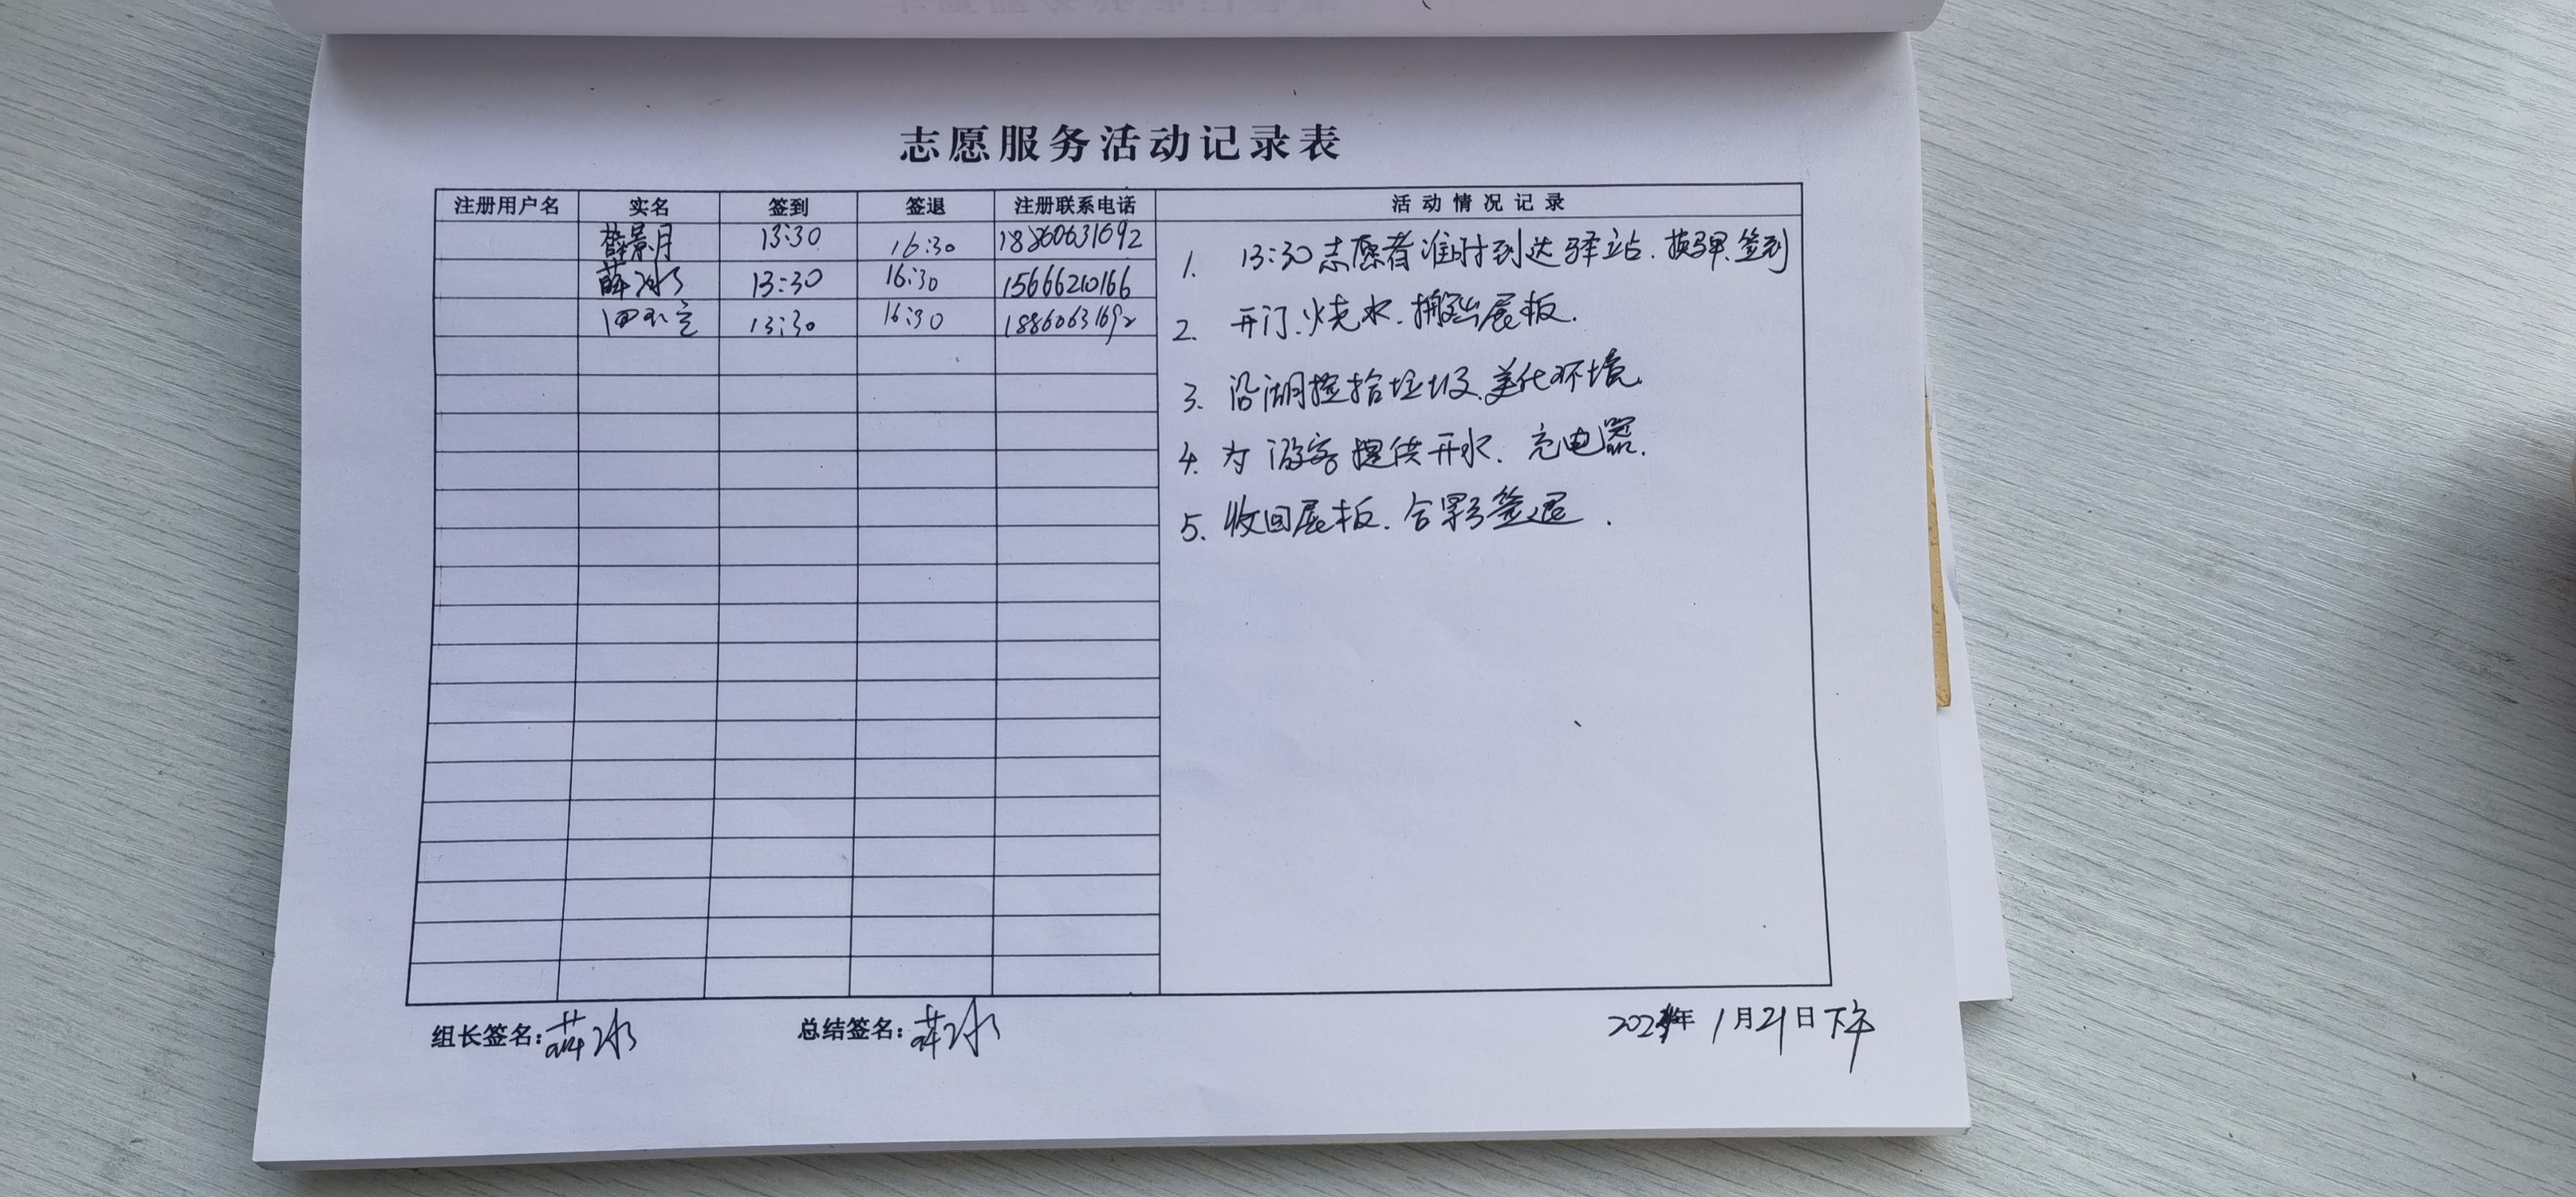 志愿服务活动记录表
注册用户名 实名 签到 签退 注册联系电话 活动情况记录
薛景月 13:30 16:30 18860631692
薛冰 13:30 16:30 15666210166
13:30 16:30 18860631692
1. 13:30志愿者准时到达驿站.换马甲.签到
2. 开门.烧水.搬出展板.
3. 沿湖捡拾垃圾.美化环境.
4. 为游客提供开水.充电器.
5. 收回展板.合影签退.
组长签名:薛冰 总结签名:薛冰 2024年1月21日下午